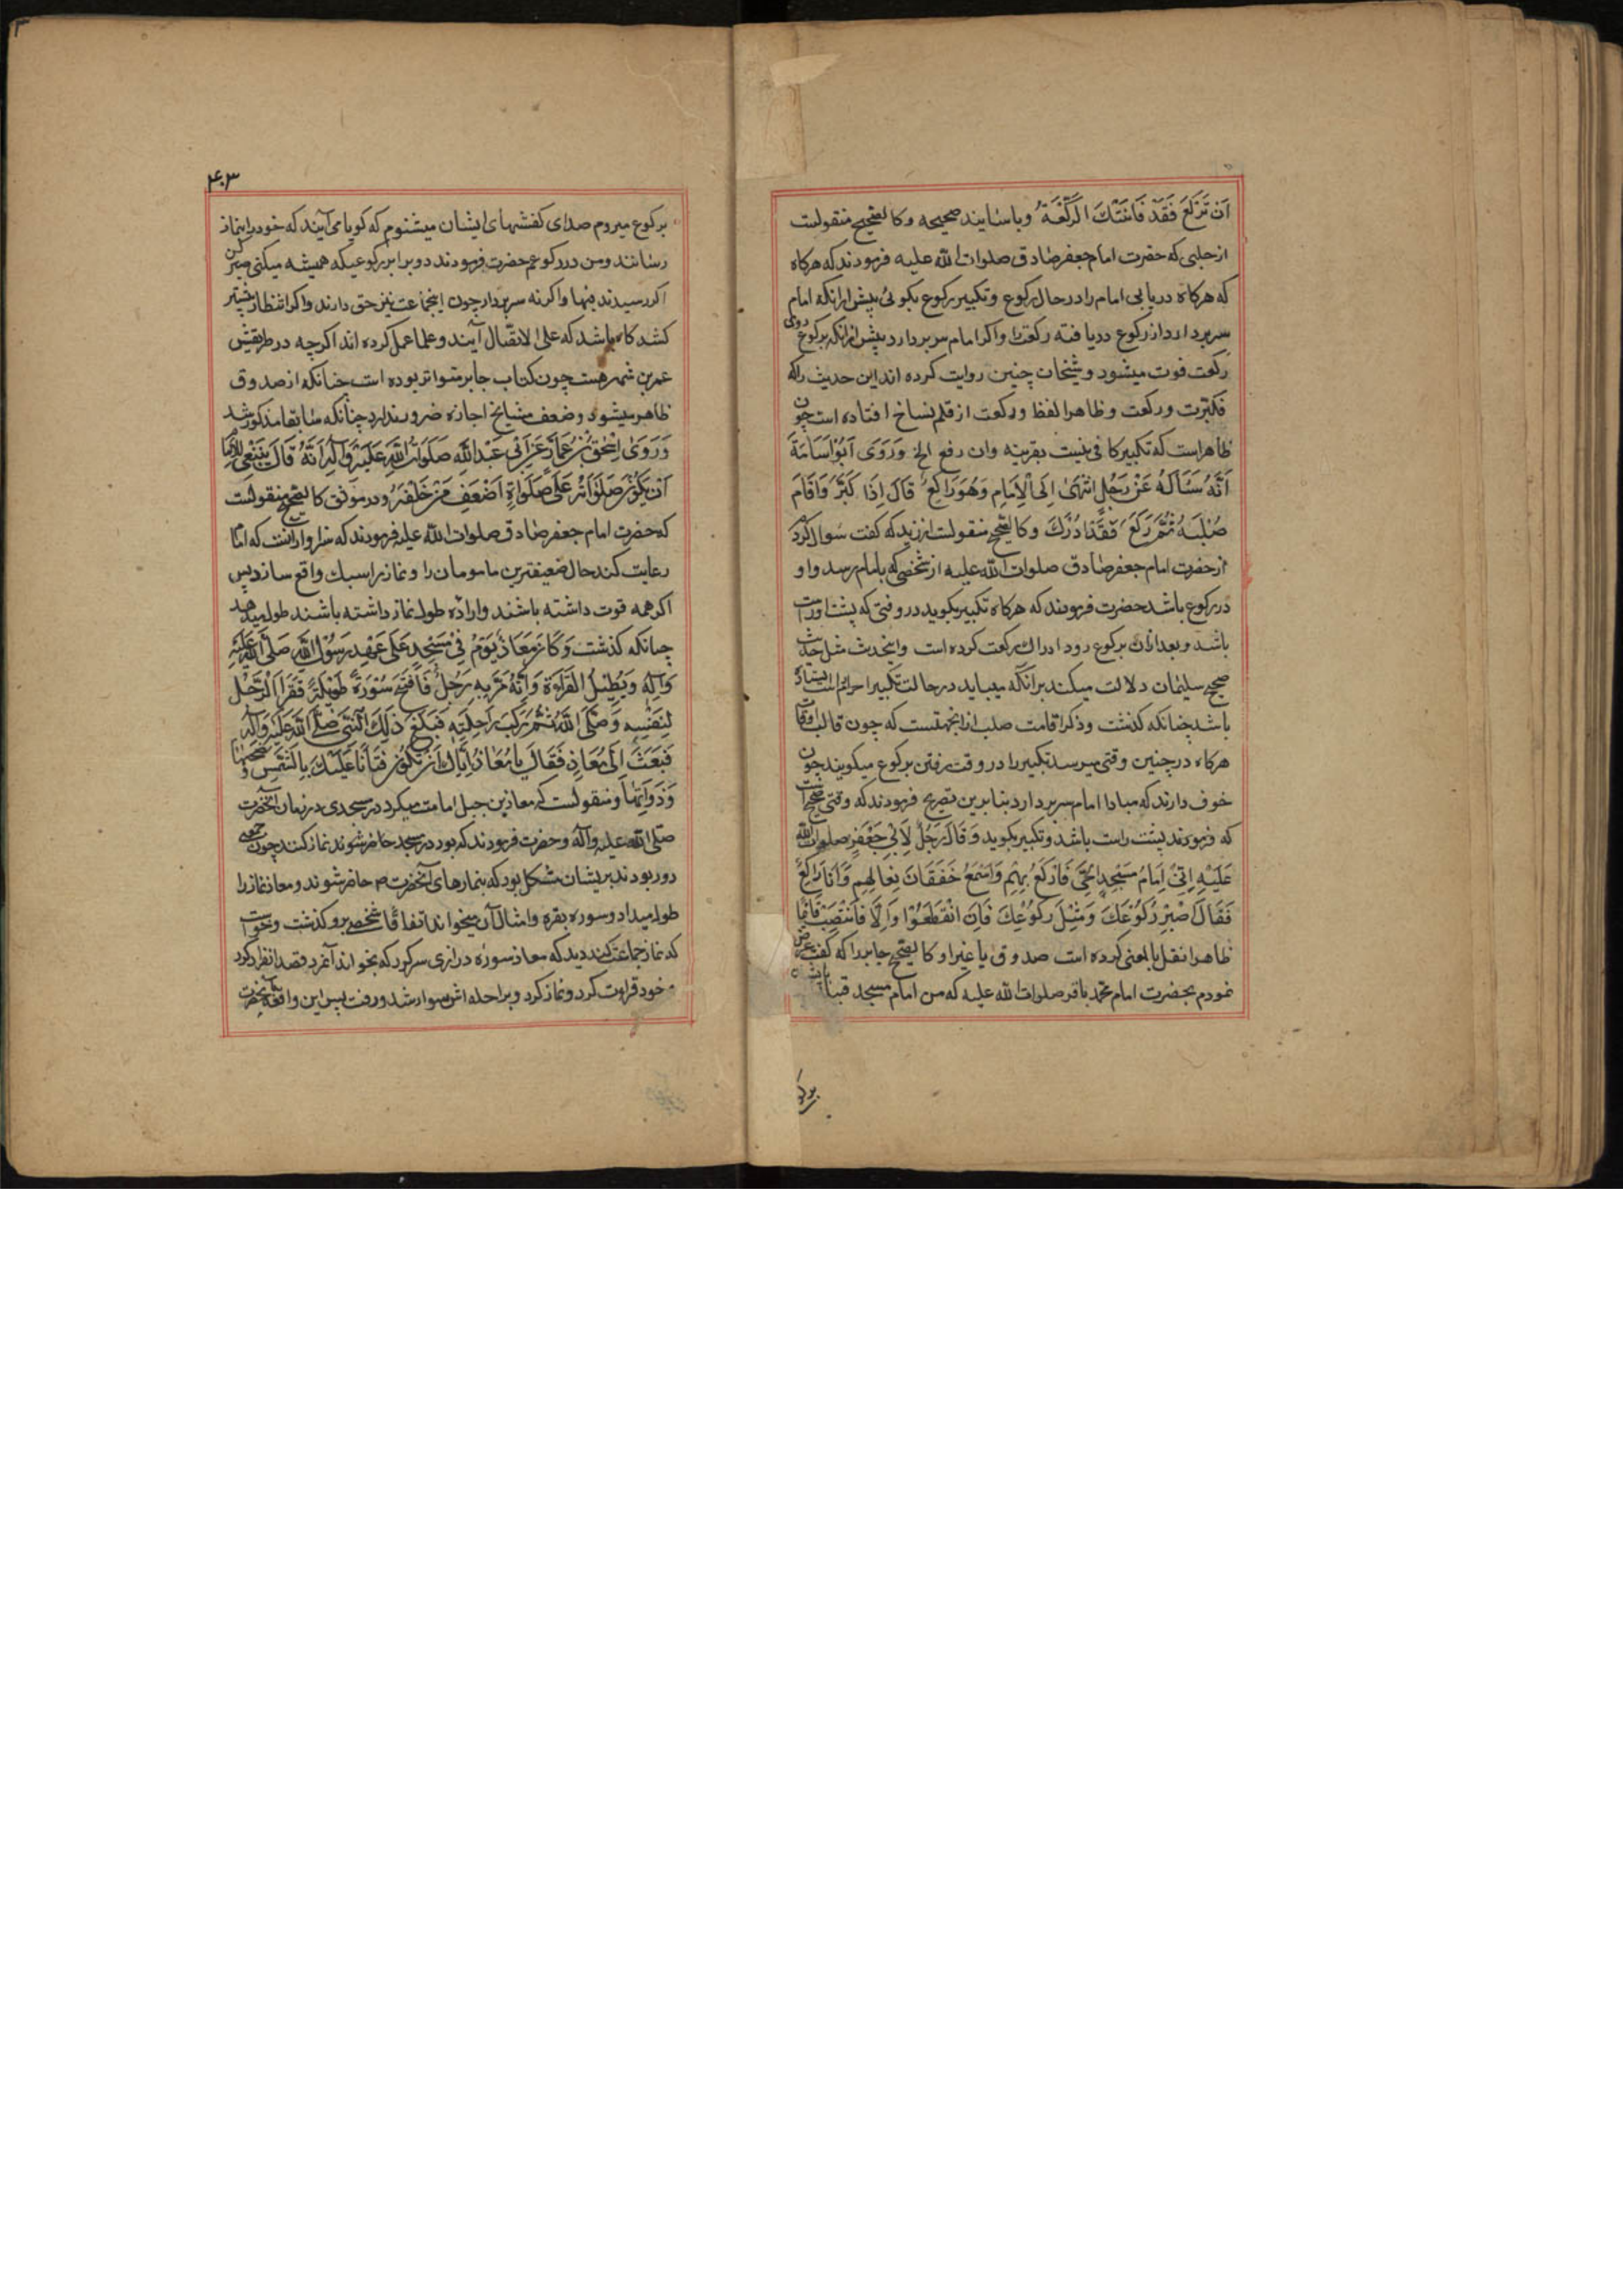 ان تركع فقد فاتتك الركعة و باسانید صحیحه و کالصحیح منقولست
از حلبی که حضرت امام جعفر صادق صلوات الله علیه فرمودند که هرکاه
که هرکاه دریابی امام را در حال رکوع و تکبیر رکوع بکوئی پیش ازانکه امام
سر بردارد از رکوع دریافته رکعت را و اکر امام سر بردارد پیش ازانکه برکوع روی
رکعت فوت میشود و شیخان چنین روایت کرده اند این حدیث را که
فکبرت ورکعت و ظاهرا لفظ ورکعت از قلم نساخ افتاده است چون
ظاهر است که تکبیر کافی نیست بقرینه وان رفع الخ وَرَوَى اَبُو اُسَامَةَ
اَنَّهُ سَئَالَهُ عَنْ رَجُلٍ انْتَهىٰ اِلَى الْاِمَامِ وَهُوَ رَاكِعٌ قَالَ اِذَا كَبَّرَ وَاَقَامَ
صُلْبَهُ ثُمَّ رَكَعَ فَقَدْ اَدْرَكَ و کالصحیح منقولست از زید که کفت سوال کردم
از حضرت امام جعفر صادق صلوات الله علیه از شخصی که بامام رسد و او
در رکوع باشد حضرت فرمودند که هرکاه تکبیر بکوید در وقتی که پشت او راست
باشد و بعد ازان برکوع رود ادراک رکعت کرده است و اینحدیث مثل حدیث
صحیح سلیمان دلالت میکند برانکه میباید در حالت تکبیر احرام ایستاده
باشد چنانکه کذشت و ذکر اقامت صلب ازانجهتست که چون غالب اوقات
هرکاه در چنین وقتی میرسد تکبیر را در وقت رفتن برکوع میکویند چون
خوف دارند که مبادا امام سر بردارد بنابرین تصریح فرمودند که وقتی صحیح است
که فرمودند پشت راست باشد و تکبیر بکوید وَقَالَ رَجُلٌ لِاَبِى جَعْفَرٍ صلوات الله
عَلَيْهِ اِنِّى اِمَامُ مَسْجِدِ الْحَىِّ فَاَرْكَعُ بِهِمْ وَاَسْمَعُ خَفَقَانَ نِعَالِهِمْ وَاَنَا رَاكِعٌ
فَقَالَ اصْبِرْ رُكُوعَكَ وَمِثْلَ رُكُوعِكَ فَاِنِ انْقَطَعُوا وَاِلَّا فَانْتَصِبْ قَائِمًا
ظاهرا نقل بالمعنی کرده است صدوق یا غیر او کالصحیح جابر را که کفت عرض
نمودم بحضرت امام محمد باقر صلوات الله علیه که من امام مسجد
برکو
۴۰۳
برکوع میروم صدای کفشهای ایشان میشنوم که کویا می آیند که خود را بنماز
رسانند و من در رکوعم حضرت فرمودند دو برابر رکوعیکه همیشه میکنی صبر کن
اکر رسیدند فبها واکرنه سر بردار چون اینجماعت نیز حق دارند و اکر انتظار بیشتر
کشد کاه باشد که علی الاتصال آیند و علما عمل کرده اند اکرچه در طریقش
عمر بن شمر هست چون کتاب جابر متواتر بوده است چنانکه از صدوق
ظاهر میشود و ضعف مشایخ اجازه ضرر ندارد چنانکه سابقا مذکور شد
وَرَوىٰ اِسْحٰقُ بْنُ عَمَّارٍ عَنْ اَبِى عَبْدِاللهِ صَلَوَاتُ اللهِ عَلَيْهِ وَآلِهِ اَنَّهُ قَالَ يَنْبَغِى لِلْاِمَامِ
اَنْ يَكُونَ صَلَوَاتُهُ عَلَى صَلَوَاةِ اَضْعَفِ مَنْ خَلْفَهُ و در موثق کالصحیح منقولست
که حضرت امام جعفر صادق صلوات الله علیه فرمودند که سزاوار آنست که امام
رعایت کند حال ضعیفترین مامومان را و نماز را سبک واقع سازد پس
اکر همه قوت داشته باشند و اراده طول نماز داشته باشند طول میدهد
چنانکه کذشت وَكَانَ مَعَاذٌ يَؤُمُّ فِى مَسْجِدٍ عَلَى عَهْدِ رَسُولِ اللهِ صَلَّى اللهُ عَلَيْهِ
وَآلِهِ وَيُطِيلُ الْقَرَاءَةَ وَاَنَّهُ مَرَّ بِهِ رَجُلٌ فَافْتَتَحَ سُورَةً طَوِيلَةً فَقَرَاَ الرَّجُلُ
لِنَفْسِهِ وَصَلَّى ثُمَّ رَكِبَ رَاحِلَتَهُ فَبَلَغَ ذٰلِكَ النَّبِىَّ صَلَّى اللهُ عَلَيْهِ وَآلِهِ
فَبَعَثَ اِلَى مُعَاذٍ فَقَالَ يَا مُعَاذُ اِيَّاكَ اَنْ تَكُونَ فَتَّانًا عَلَيْكَ بِالشَّمْسِ وَضُحٰيهَا
وَذَوَاتِهَا و منقولست که معاذ بن جبل امامت میکرد در مسجدی در زمان آنحضرت
صلی الله علیه وآله و حضرت فرمودند که بود در مسجد حاضر شوند نماز کنند چون جمعی
دور بودند بریشان مشکل بود که بنمازهای آنحضرت ص حاضر شوند و معاذ نماز را
طول میداد و سوره بقره و امثال آن میخواند اتفاقا شخصی برو کذشت و خواست
که نماز جماعت کند دید که معاذ سوره درازی سر کرد که بخواند آنمرد قصد انفراد کرد
و خود قراءت کرد و نماز کرد و بر راحله اش سوار شد و رفت پس این واقعه بآنحضرت